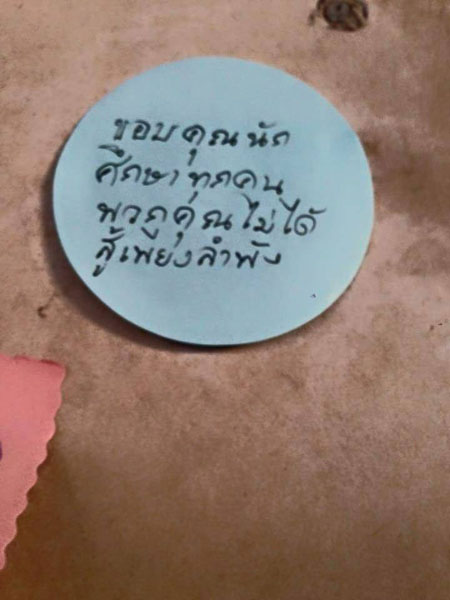 ขอบคุณนัก
ศึกษาทุกคน
พวกคุณไม่ได้
สู้เพียงลำพัง